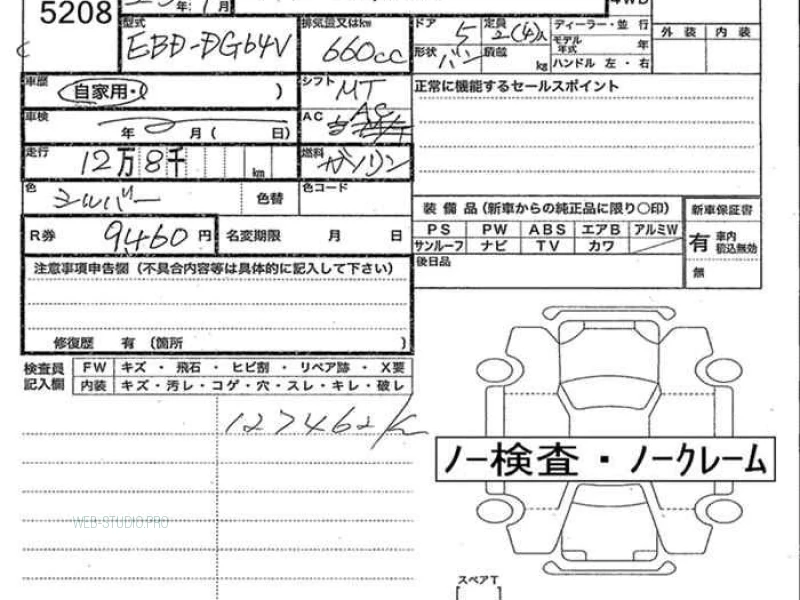 5208
年 月
4WD
型式 EBD-DG64V
排気量又はkw 660cc
ドア 5 定員 2(4)人
形状 バン 積載 kg
ディーラー・並行
モデル年式 年
ハンドル 左・右
外装 内装
車歴 自家用・( )
シフト MT
車検 年 月( 日)
AC AC
走行 12万8千 km
燃料 ガソリン
色 シルバー 色替
色コード
R券 9460円 名変期限 月 日
正常に機能するセールスポイント
装備品(新車からの純正品に限り○印)
PS PW ABS エアB アルミW
サンルーフ ナビ TV カワ
後日品
新車保証書
有 車内積込無効
無
注意事項申告欄(不具合内容等は具体的に記入して下さい)
修復歴 有 (箇所 )
検査員記入欄
FW キズ・飛石・ヒビ割・リペア跡・X要
内装 キズ・汚レ・コゲ・穴・スレ・キレ・破レ
127462K
ノー検査・ノークレーム
WEB-STUDIO.PRO
スペアT
[ ]